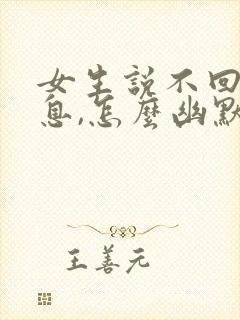 女生說不回
息,怎麼幽默
王善元